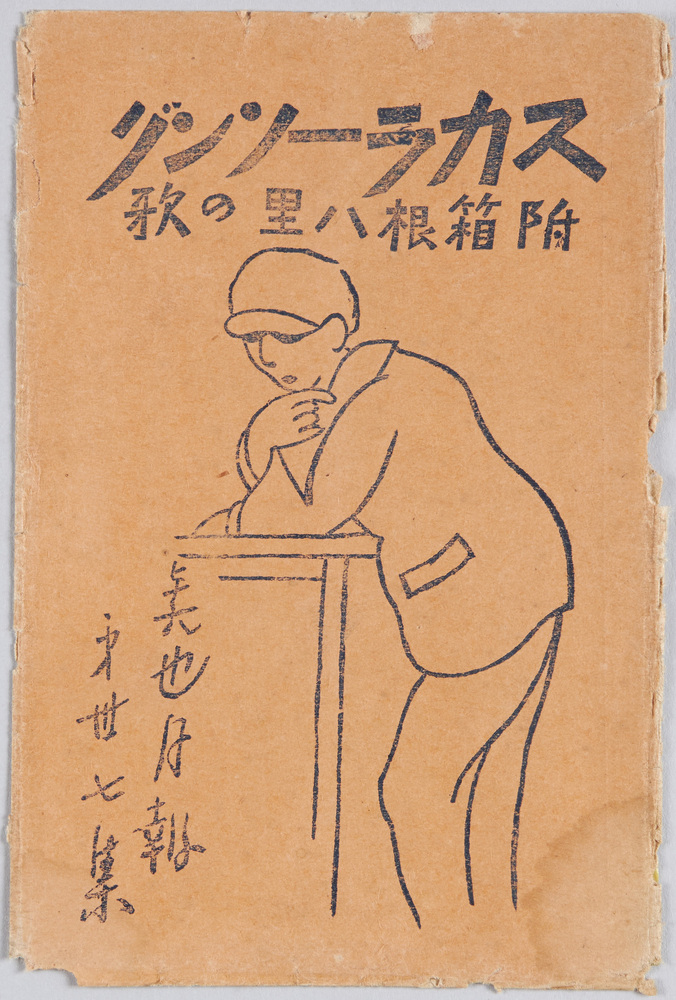 スカラーソング
附箱根八里の歌
美也月報
㐧世七集